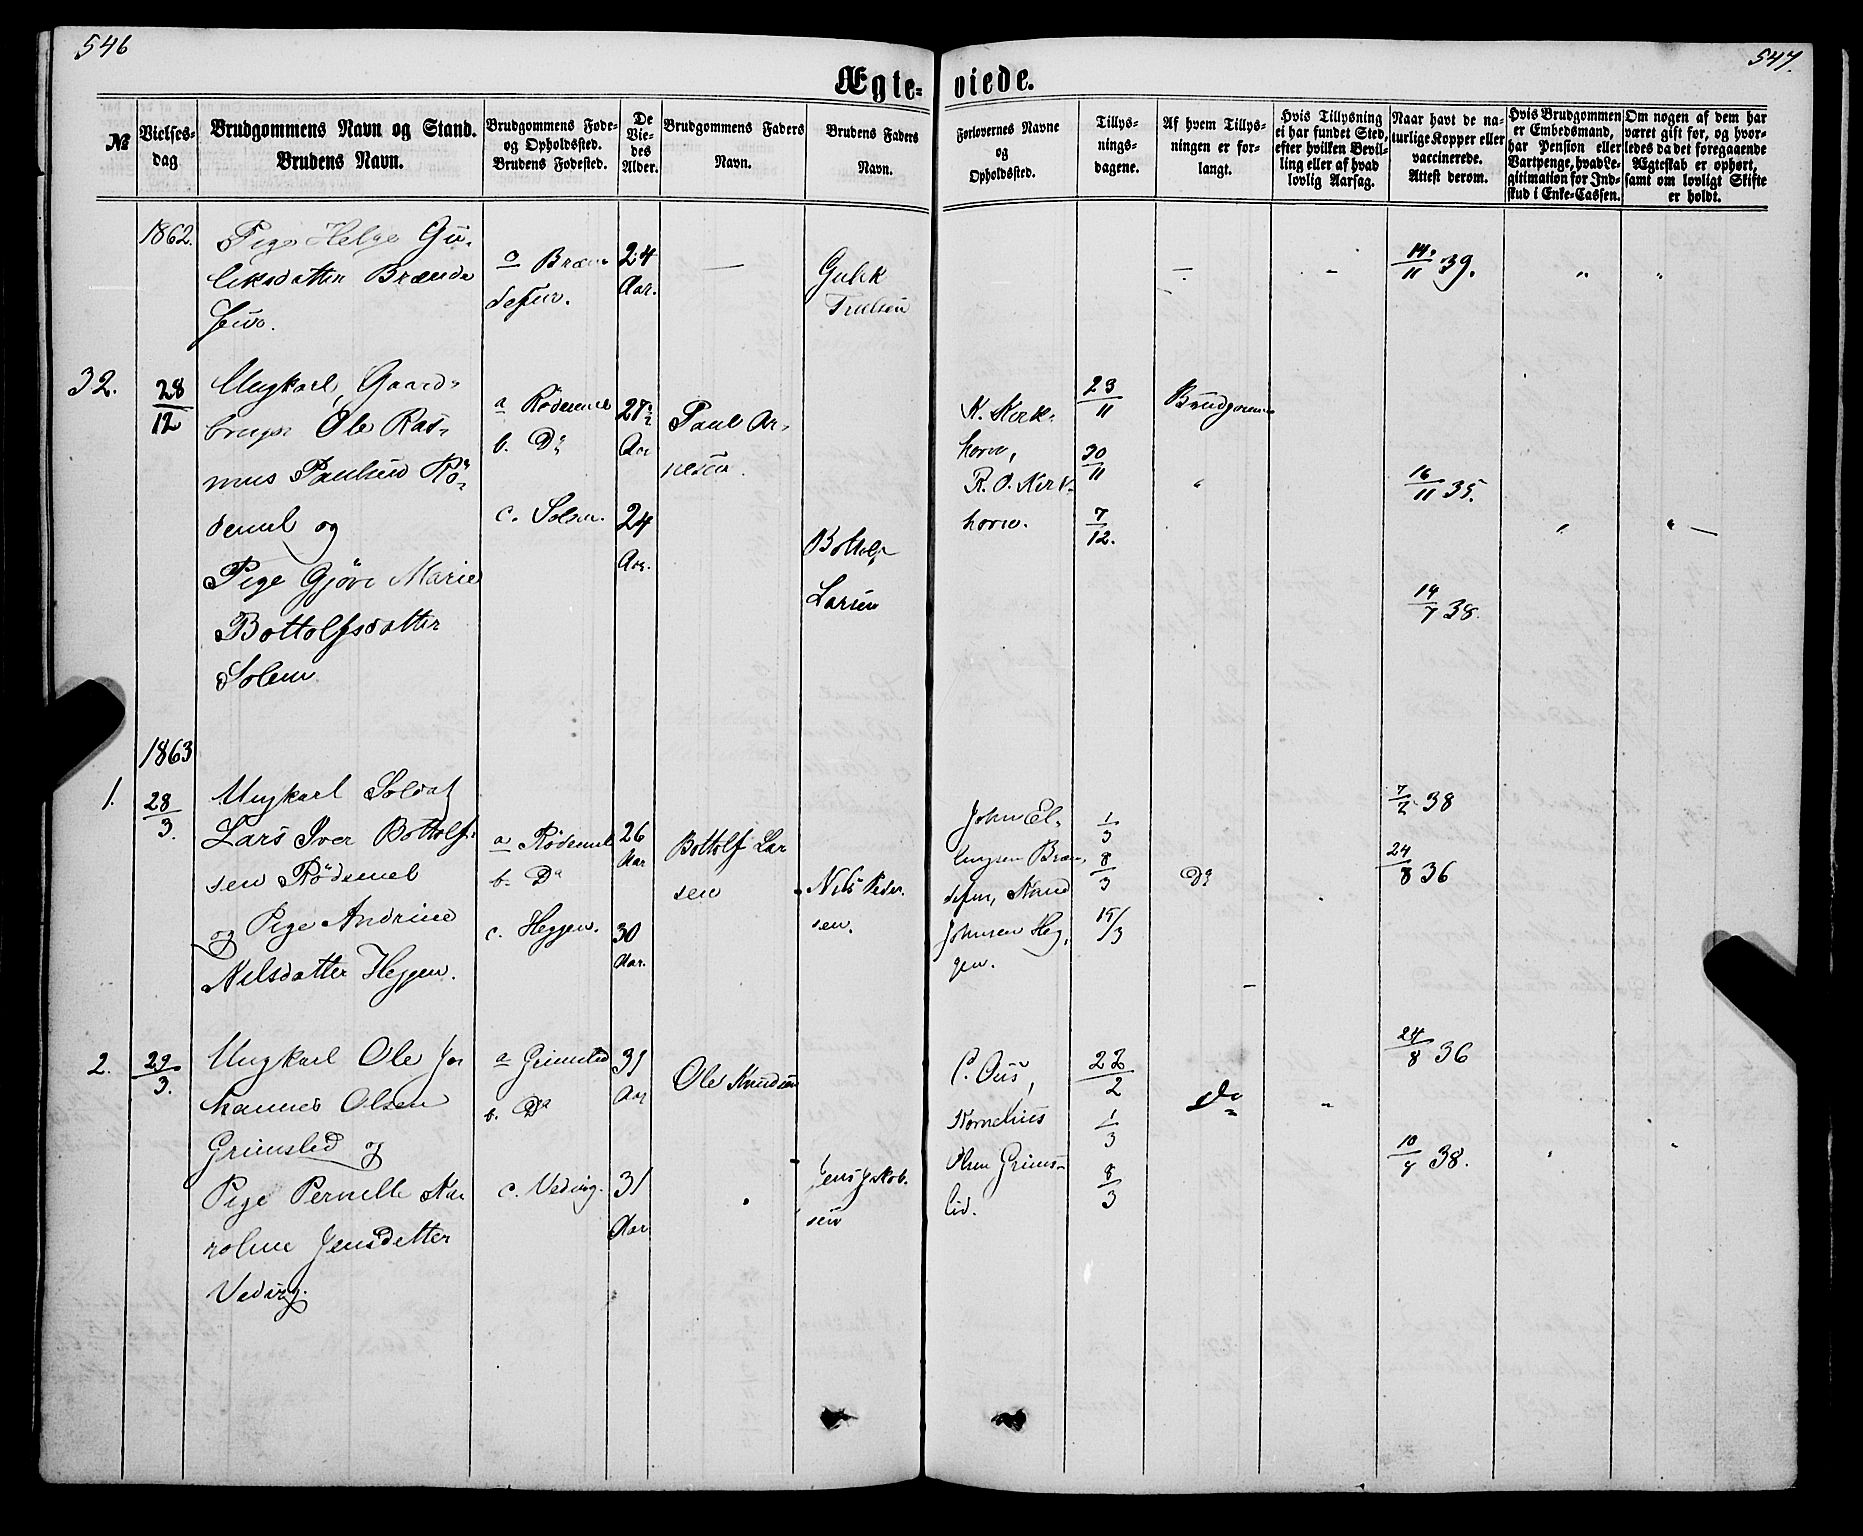 546
547.
Ægte-
viede.
№
Vielses-
dag
Brudgommens Navn og Stand.
Brudens Navn.
Brudgommens Føde-
og Opholdssted.
Brudens Fødested.
De
Vie-
des
Alder.
Brudgommens Faders
Navn.
Brudens Faders
Navn.
Forlovernes Navne
og
Opholdssted.
Tillys-
nings-
dagene.
Af hvem Tillys-
ningen er for-
langt.
Hvis Tillysning
ei har fundet Sted,
efter hvilken Bevil-
ling eller af hvad
lovlig Aarsag.
Naar havt de na-
turlige Kopper eller
vaccinerede.
Attest derom.
Hvis Brudgommen
er Embedsmand,
har Pension eller
Vartpenge, hvad Le-
gitimation for Ind-
skud i Enke-Cassen.
Om nogen af dem har
været gift før, og hvor-
ledes da det foregaaende
Ægteskab er ophørt,
samt om lovligt Skifte
er holdt.
1862.
Pige Helge Gu-
liksdatter Brænde
24
Aar.
Gulik
14/11 39.
32.
28/12
Ungkarl, Gaard-
bruger Ole Ras-
mus Paulsen Rö-
demel og
Pige Gjöri Marie
Bottolfsdatter
Solem
a Rödemel
b. Do
c. Solem.
27 1/2
Aar
24
Aar.
Paul Ar-
nesen.
Bottolf
Larsen
K. Kirk-
horn,
R. O. Kirk-
horn.
23/11
30/11
7/12.
Brudgommen
16/11 35.
14/7 38.
1863
1.
28/3.
Ungkarl Soldat
Lars Iver Bottolf-
sen Rödemel
og Pige Andrine
Nilsdatter Heggen.
a Rödemel
b. Do
c. Heggen.
26
Aar
30
Aar.
Bottolf Lar
sen
Nils Peder-
sen.
John El-
lingsen Bræn-
Johnsen Heg-
gen.
1/3
8/3
15/3
Do
7/2 38
24/8 36
2.
29/3.
Ungkarl Ole Jo
hannes Olsen
Grimsled og
Pige Pernelle Ka
roline Jensdatter
Vedvig.
a Grimsled
b. Do
c. Vedvig.
31
Aar
31
Aar
Ole Knudsen
Jens Jakob-
sen
C. Ous,
Kornelius
Olsen Grims-
lid.
22/2
1/3
8/3
Do
24/8 36
10/9 38.